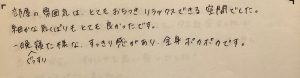 部屋の雰囲気は、とてもおちつきリラックスできる空間でした。
細かな気くばりもとても良かったです。
一眠寝た様な、すっきり感があり、全身ポカポカです。
ぐっすり